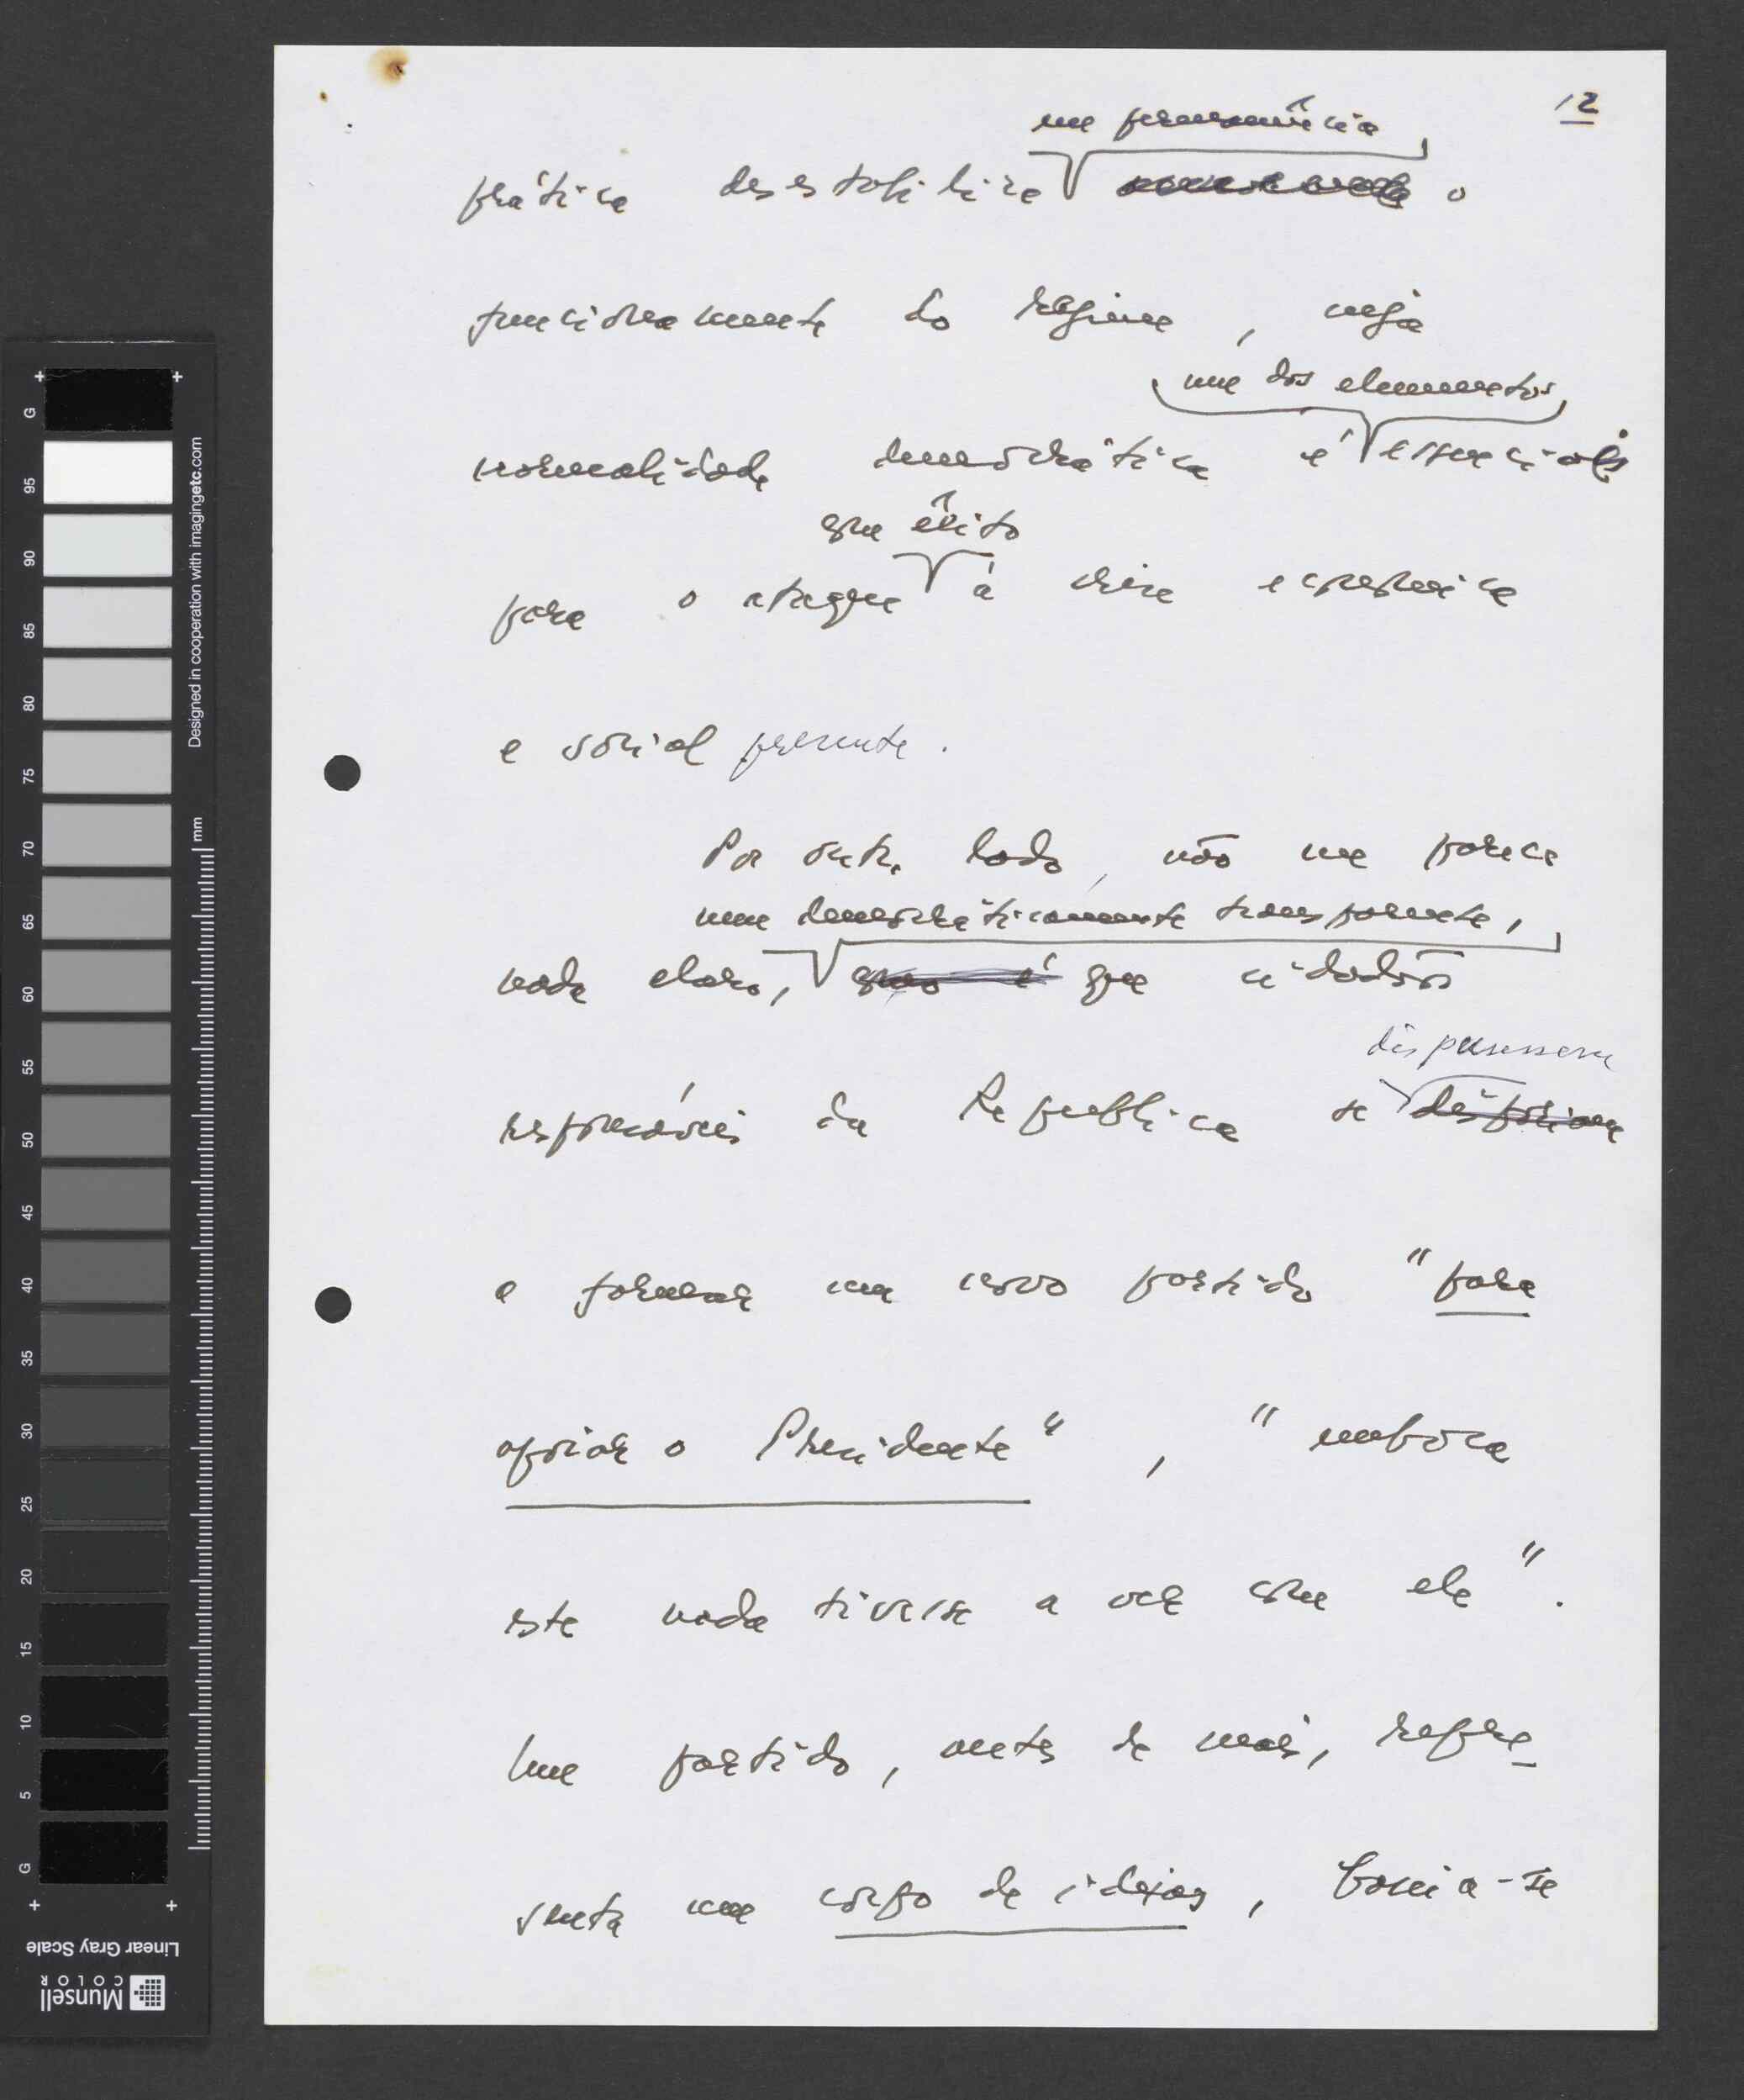 12
em permanência,
prática desestabiliza o
funcionamento do regime, cuja
um dos elementos,
normalidade democrática é essenciais
com êxito
para o ataque à crise económica
e social presente.
Por outro lado, não me parece
nem democraticamente transparente,
nada claro, que cidadãos
dispusessem
responsáveis da República se dispõem
a formar um novo partido "para
apoiar o Presidente", "embora
este nada tivesse a ver com ele".
Um partido, antes de mais, repre-
senta um corpo de ideias, baseia-se
Designed in cooperation with imagingetc.com
mm
G 95 90 85 80 75 70 65 60 55 50 45 40 35 30 25 20 15 10 5 G
Linear Gray Scale
Munsell
COLOR